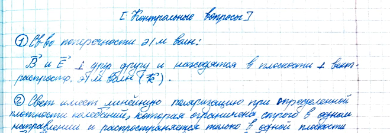 [Контрольные вопросы]
① Св-во поперечности э/м волн:
B⃗ и E⃗ ⊥ друг другу и находятся в плоскости ⊥ вект.
распростр. э/м волн (k⃗).
② Свет имеет линейную поляризацию при определенной
плотности колебаний, которая ограничена строго в одном
направлении и распространяется только в одной плоскости